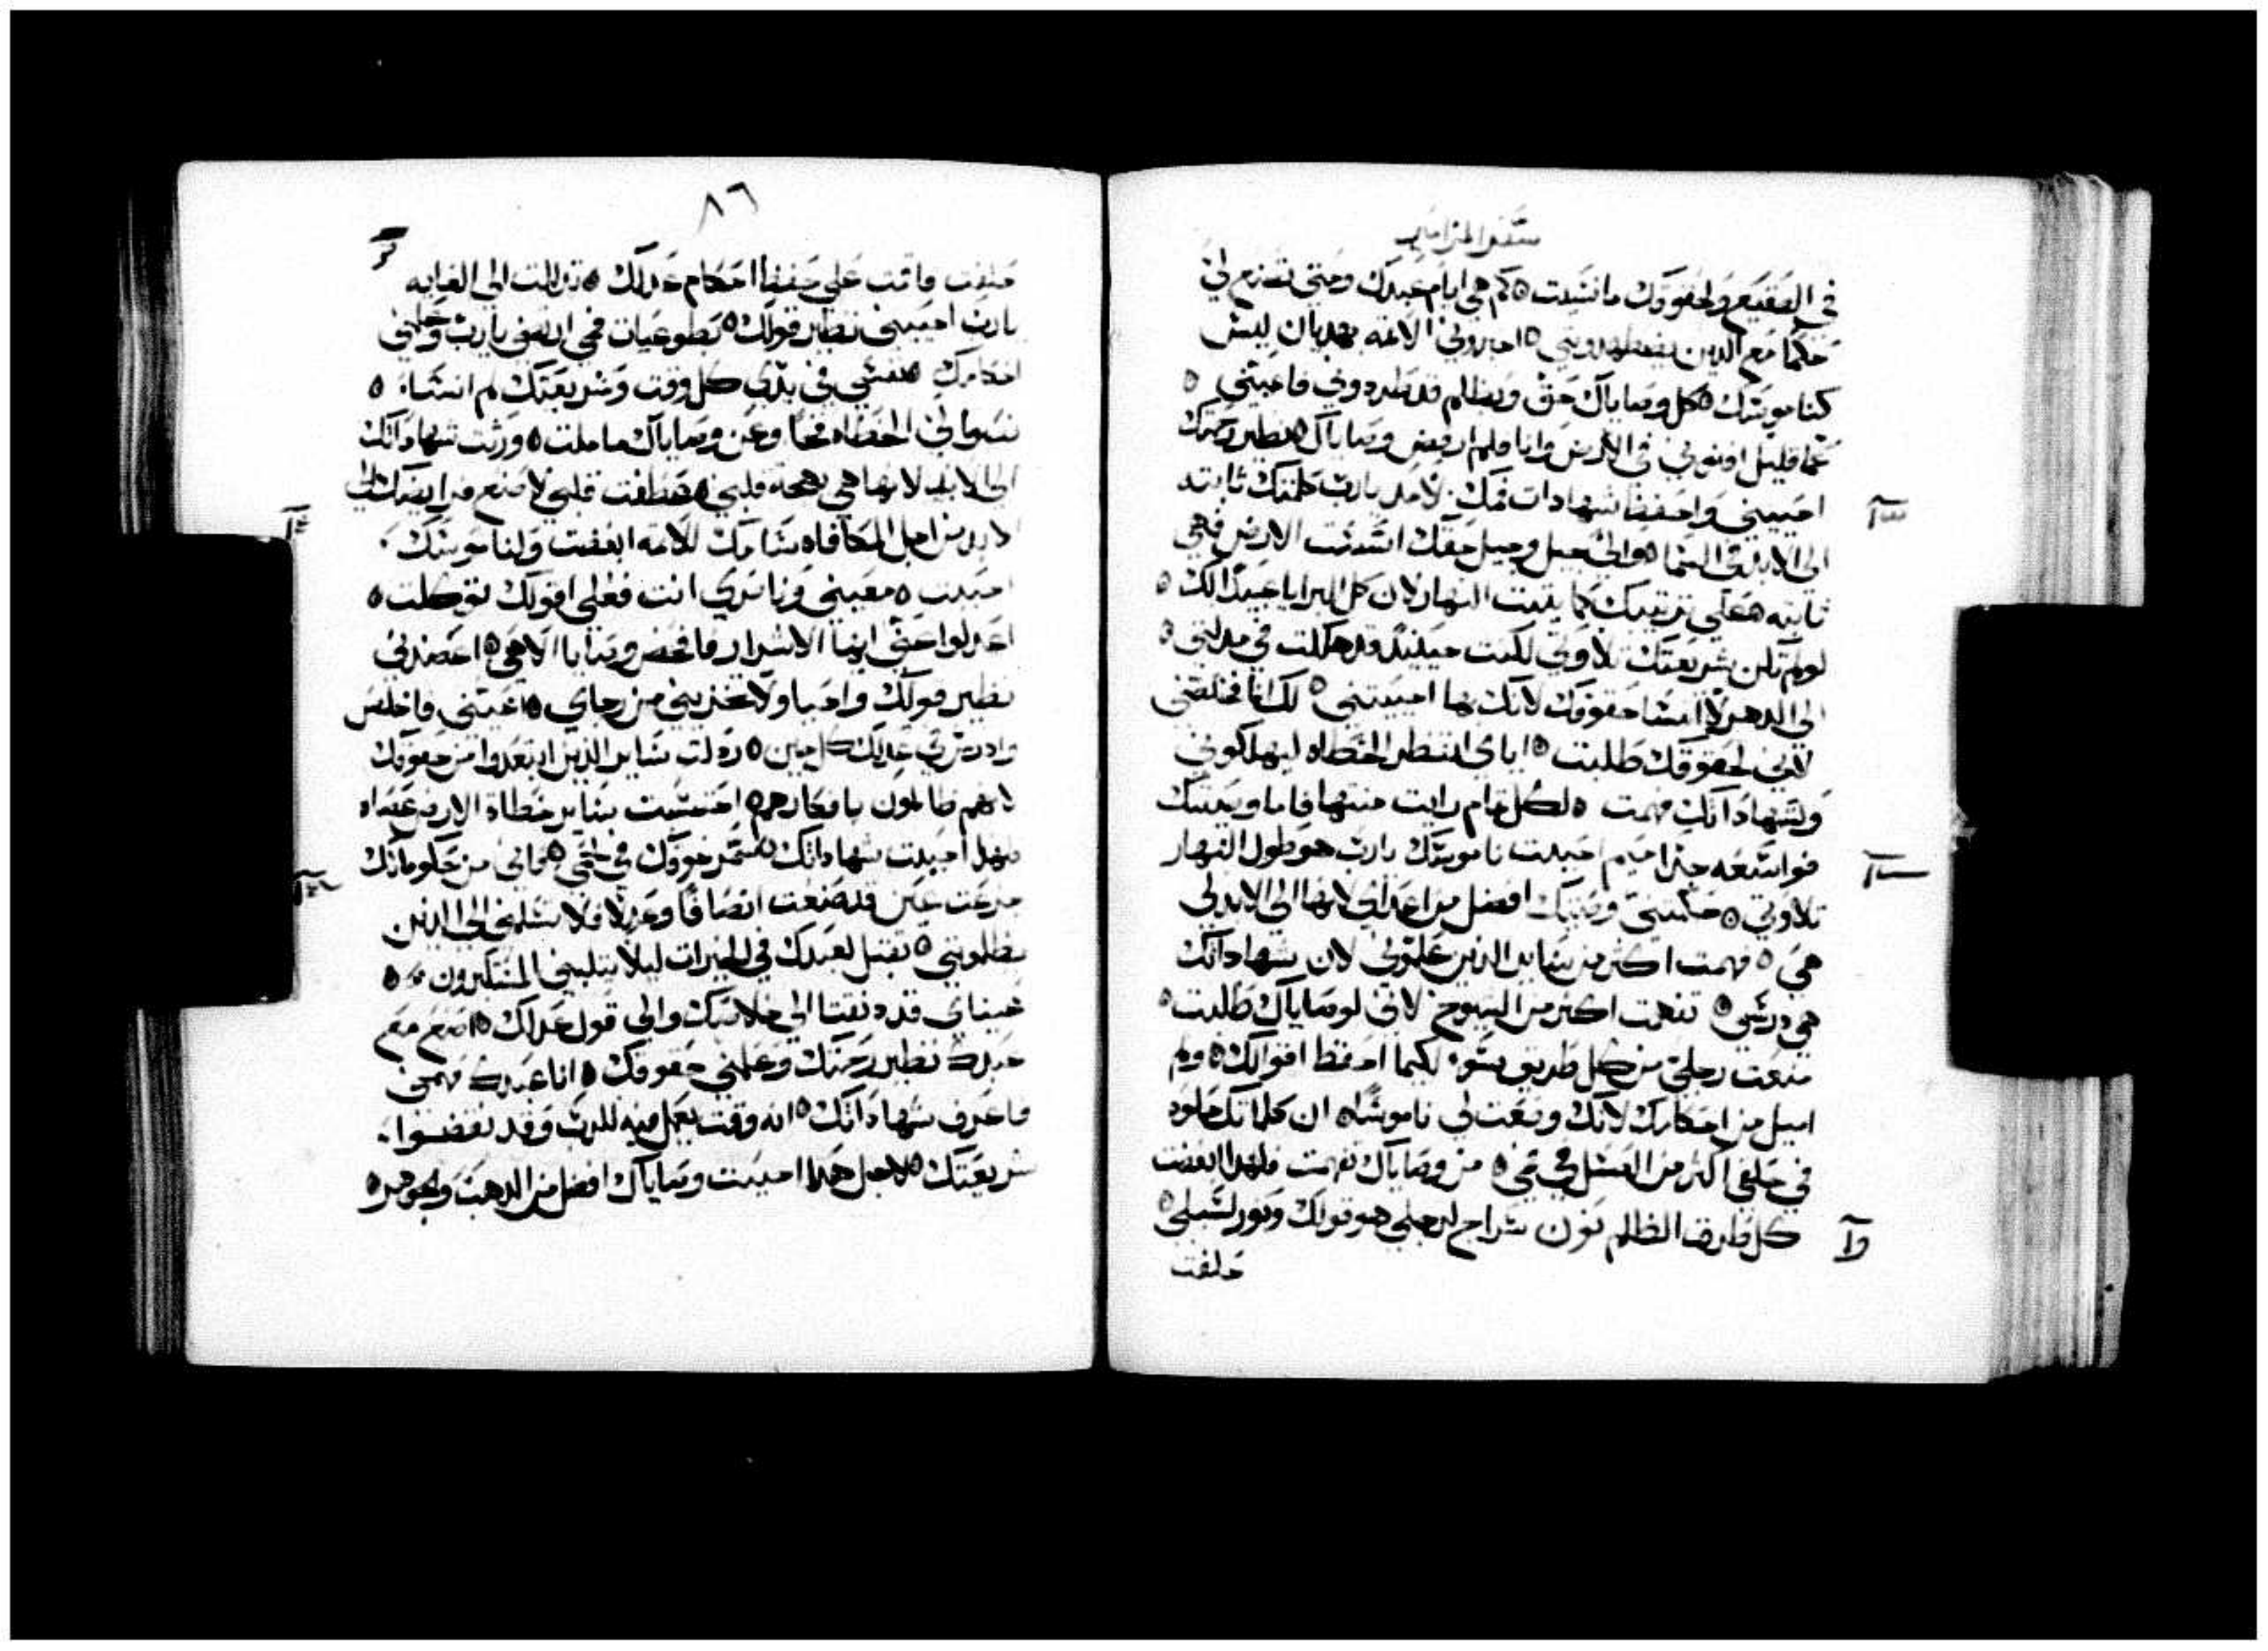 سفر المزامير
في الصقيع ولحقوقك ما نسيت ه كم هي ايام عبدك ومتى تصنع لي
حكما مع الذين يضطهدوني ه اخبروني الاثمه بهديان ليس
كناموسك ه كل وصاياك حق وبظلم قد طردوني فاعيني ه
عما قليل افنوني في الارض وانا فلم ارفض وصاياك ه نظير رحمتك
احييني واحفظ شهادات فمك. لامد يا رب كلمتك ثابته
الى الابد في السما ه والى جيل وجيل حقك اسست الارض فهي
ثابته ه على ترتيبك يثبت النهار لان كل البرايا عبيدا لك ه
لو لم تكن شريعتك تلاوتي لكنت حينيذ قد هلكت في مدلتي ه
الى الدهر لا انسا حقوقك لانك بها احييتني ه لك انا فخلصني
لانني لحقوقك طلبت ه اياي انتظر الخطاه ليهلكوني
ولشهاداتك فهمت ه لكل تمام رايت منتها فاما وصيتك
فواسعه جدا ميم احببت ناموسك يا رب هو طول النهار
تلاوتي ه حكمتني وصيتك افضل من اعداي لانها الى الابد لي
هي ه فهمت اكثر من ساير الذين علموني لان شهاداتك
هي درسي ه تفهمت اكثر من الشيوخ لاني لوصاياك طلبت ه
منعت رجلي من كل طريق سو لكيما احفظ اقوالك ه ولم
اميل من احكامك لانك وضعت لي ناموسا ه ان كلماتك حلوه
في حلقي اكثر من العسل في فمي ه من وصاياك تفهمت فلهدا ابغضت
كل طريق الظلم نون سراج لرجلي هو قولك ونور لسبلي ه
حلفت
٨٦
حلفت واقمت على حفظ احكام عدلك ه تذللت الى الغايه
يا رب احييني نظير قولك ه تطوعيات فمي ارتضي يا رب وعلمني
احكامك ه نفسي في يدي كل وقت وشريعتك لم انساه ه
نصبوا لي الخطاه فخا وعن وصاياك ما ملت ه ورثت شهاداتك
الى الابد لانها هي بهجة قلبي ه عطفت قلبي لاصنع فرايضك الى
الابد من اجل المكافاه سامك للاثمه ابغضت ولناموسك
احببت ه معيني وناصري انت فعلى اقوالك توكلت ه
اعدلوا عني ايها الاشرار فافحص وصايا الاهي ه اعضدني
نظير قولك واحيا ولا تخزيني من رجاي ه اعيني فاخلص
وادرس في عدلك كل حين ه ردلت ساير الذين ابتعدوا من حقوقك
لانهم ظالمون بافكارهم ه احتسبت ساير خطاه الارض عصاه
فلهدا احببت شهاداتك ه سمر خوفك في لحمي ه فاني من حكوماتك
جزعت عين قد صنعت انصافا وعدلا فلا تسلمني الى الذين
يظلموني ه تقبل لعبدك في الخيرات ليلا يتلبني المتكبرون ه
عيناي قد دنفتا الى خلاصك والى قول عدلك ه اصنع مع
عبدك نظير رحمتك وعلمني حقوقك ه انا عبدك فهمني
فاعرف شهاداتك ه انه وقت يعمل فيه للرب وقد نقضوا
شريعتك ه لاجل هدا احببت وصاياك افضل من الدهب والجوهر ه